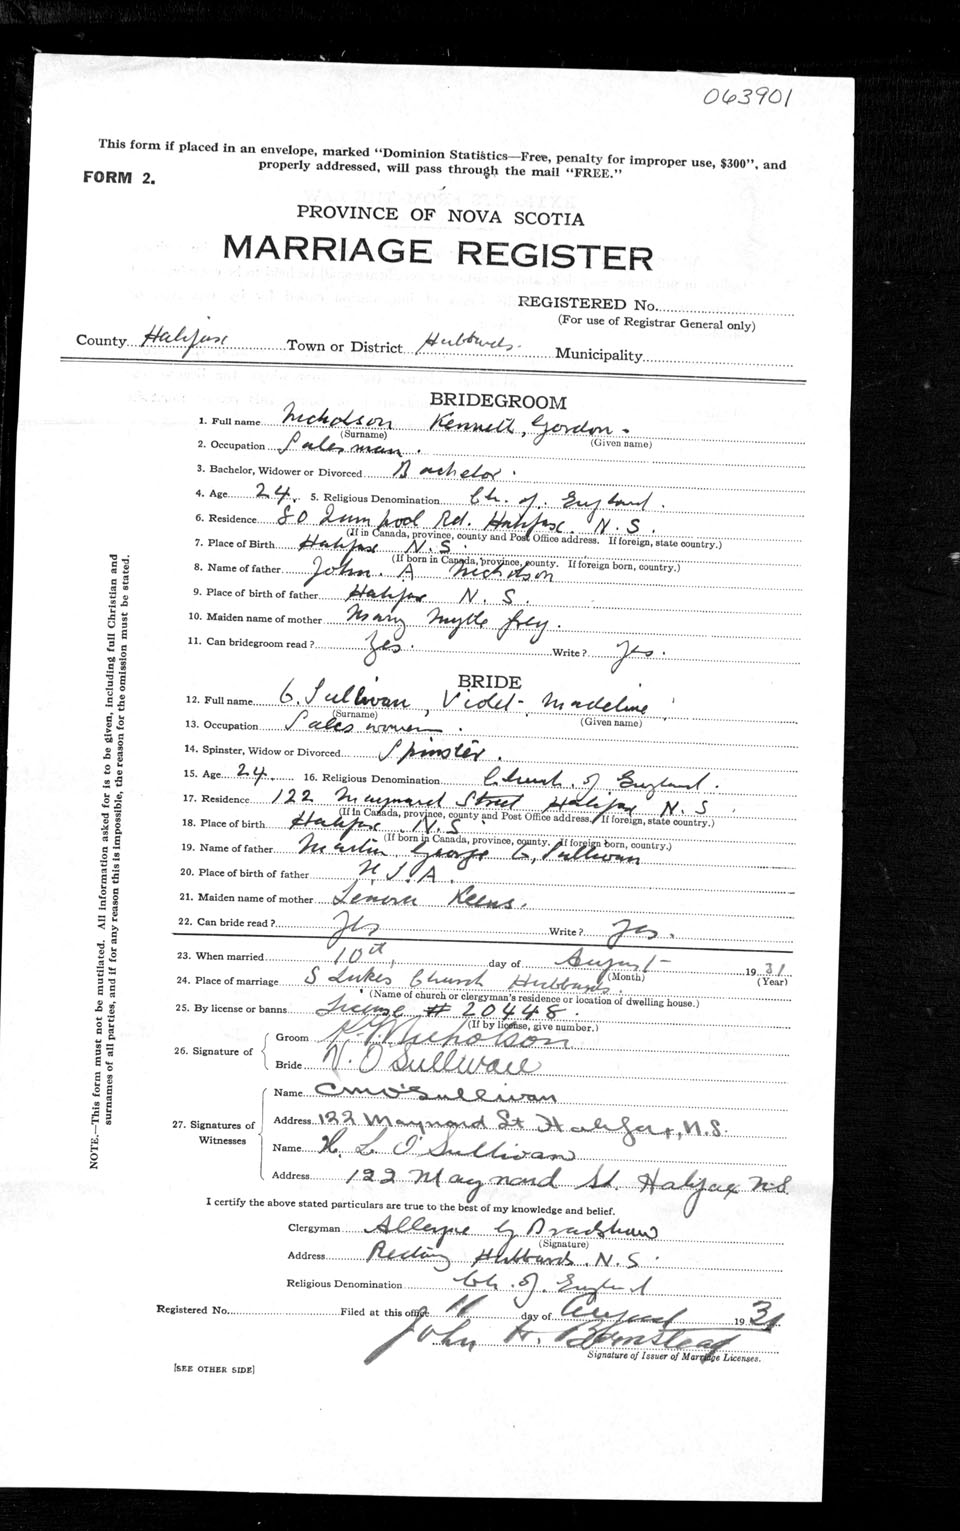 063901
This form if placed in an envelope, marked "Dominion Statistics—Free, penalty for improper use, $300", and
properly addressed, will pass through the mail "FREE."
FORM 2.
PROVINCE OF NOVA SCOTIA
MARRIAGE REGISTER
REGISTERED No.
(For use of Registrar General only)
County Halifax Town or District Hubbards. Municipality
BRIDEGROOM
1. Full name Nicholson Kenneth, Gordon.
(Surname) (Given name)
2. Occupation Salesman.
3. Bachelor, Widower or Divorced Bachelor.
4. Age 24. 5. Religious Denomination Ch. of. England.
6. Residence 80 Quinpool Rd. Halifax, N. S.
(If in Canada, province, county and Post Office address. If foreign, state country.)
7. Place of Birth Halifax N. S.
(If born in Canada, province, county. If foreign born, country.)
8. Name of father John. A Nicholson
9. Place of birth of father Halifax N. S.
10. Maiden name of mother Mary Myrtle Grey.
11. Can bridegroom read? Yes. Write? Yes.
BRIDE
12. Full name O'Sullivan, Violet Madeline
(Surname) (Given name)
13. Occupation Sales women.
14. Spinster, Widow or Divorced Spinster.
15. Age 24. 16. Religious Denomination Church of England.
17. Residence 122 Maynard Street Halifax N. S.
(If in Canada, province, county and Post Office address. If foreign, state country.)
18. Place of birth Halifax N. S
(If born in Canada, province, county. If foreign born, country.)
19. Name of father Martin George O'Sullivan
20. Place of birth of father
21. Maiden name of mother Lenora Keens.
22. Can bride read? Yes Write? Yes.
23. When married 10th, day of August 1931
(Month) (Year)
24. Place of marriage S Lukes Church Hubbards.
(Name of church or clergyman's residence or location of dwelling house.)
25. By license or banns License # 20448.
(If by license, give number.)
26. Signature of
Groom K G Nicholson
Bride V. O'Sullivan
27. Signatures of Witnesses
Name C M O'Sullivan
Address 122 Maynard St Halifax, N.S.
Name H. L. O'Sullivan
Address 122 Maynard St. Halifax N.S.
I certify the above stated particulars are true to the best of my knowledge and belief.
Clergyman G Bradshaw
(Signature)
Address Rectory Hubbards, N. S.
Religious Denomination Ch. of. England
Registered No. Filed at this office 11 day of August 1931
John H.
Signature of Issuer of Marriage Licenses.
[SEE OTHER SIDE]
NOTE.—This form must not be mutilated. All information asked for is to be given, including full Christian and
surnames of all parties, and if for any reason this is impossible, the reason for the omission must be stated.